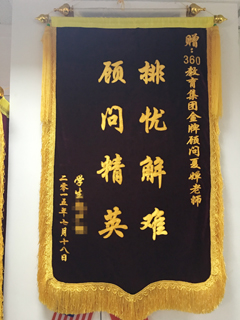 赠：360教育集团金牌顾问夏婵老师
排忧解难
顾问精英
学生
二零一五年七月十八日